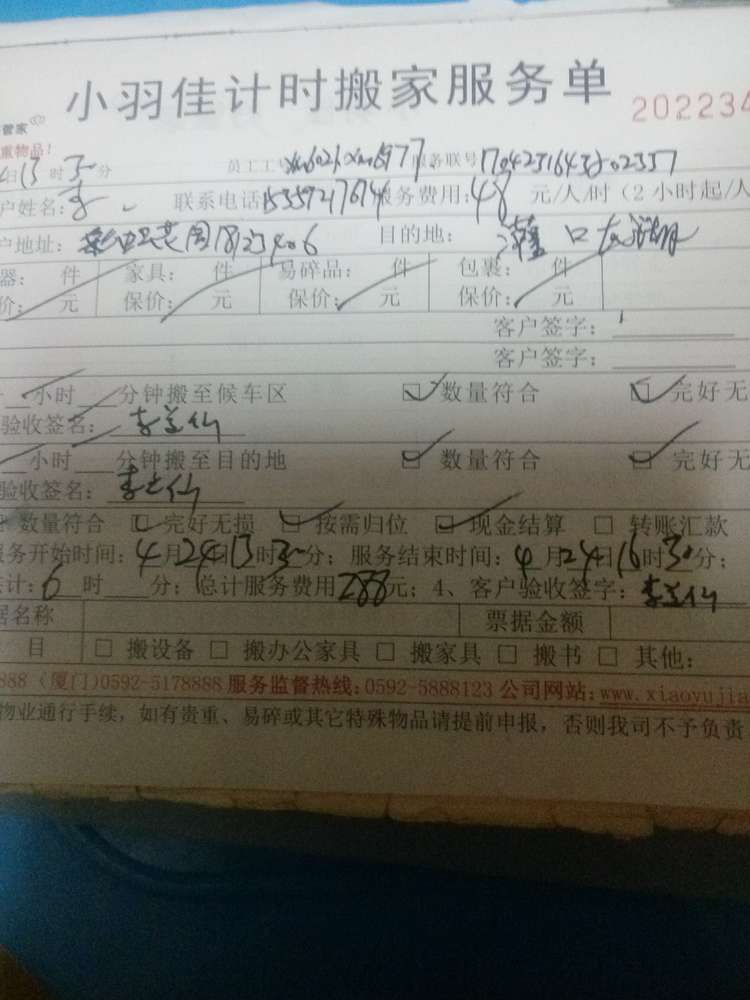 小羽佳计时搬家服务单 202234
管家
重物品!
日13时30分 员工工号 xm6021 xm6977 服务联号
户姓名:李 联系电话 服务费用:48元/人/时(2小时起/人
户地址: 目的地:
器: 件 家具: 件 易碎品: 件 包裹: 件
价: 元 保价: 元 保价: 元 保价: 元
客户签字:
客户签字:
小时 分钟搬至候车区 ☑数量符合 ☑完好无
验收签名:
小时 分钟搬至目的地 ☑数量符合 ☑完好无
验收签名:
数量符合 ☑完好无损 ☑按需归位 ☑现金结算 □转账汇款
服务开始时间:4月24日13时30分;服务结束时间:4月24日16时30分;
计:6时 分;总计服务费用288元;4、客户验收签字:
据名称 票据金额
目 □搬设备 □搬办公家具 □搬家具 □搬书 □其他:
888(厦门)0592-5178888 服务监督热线:0592-5888123 公司网站:www.xiaoyujia
物业通行手续,如有贵重、易碎或其它特殊物品请提前申报,否则我司不予负责